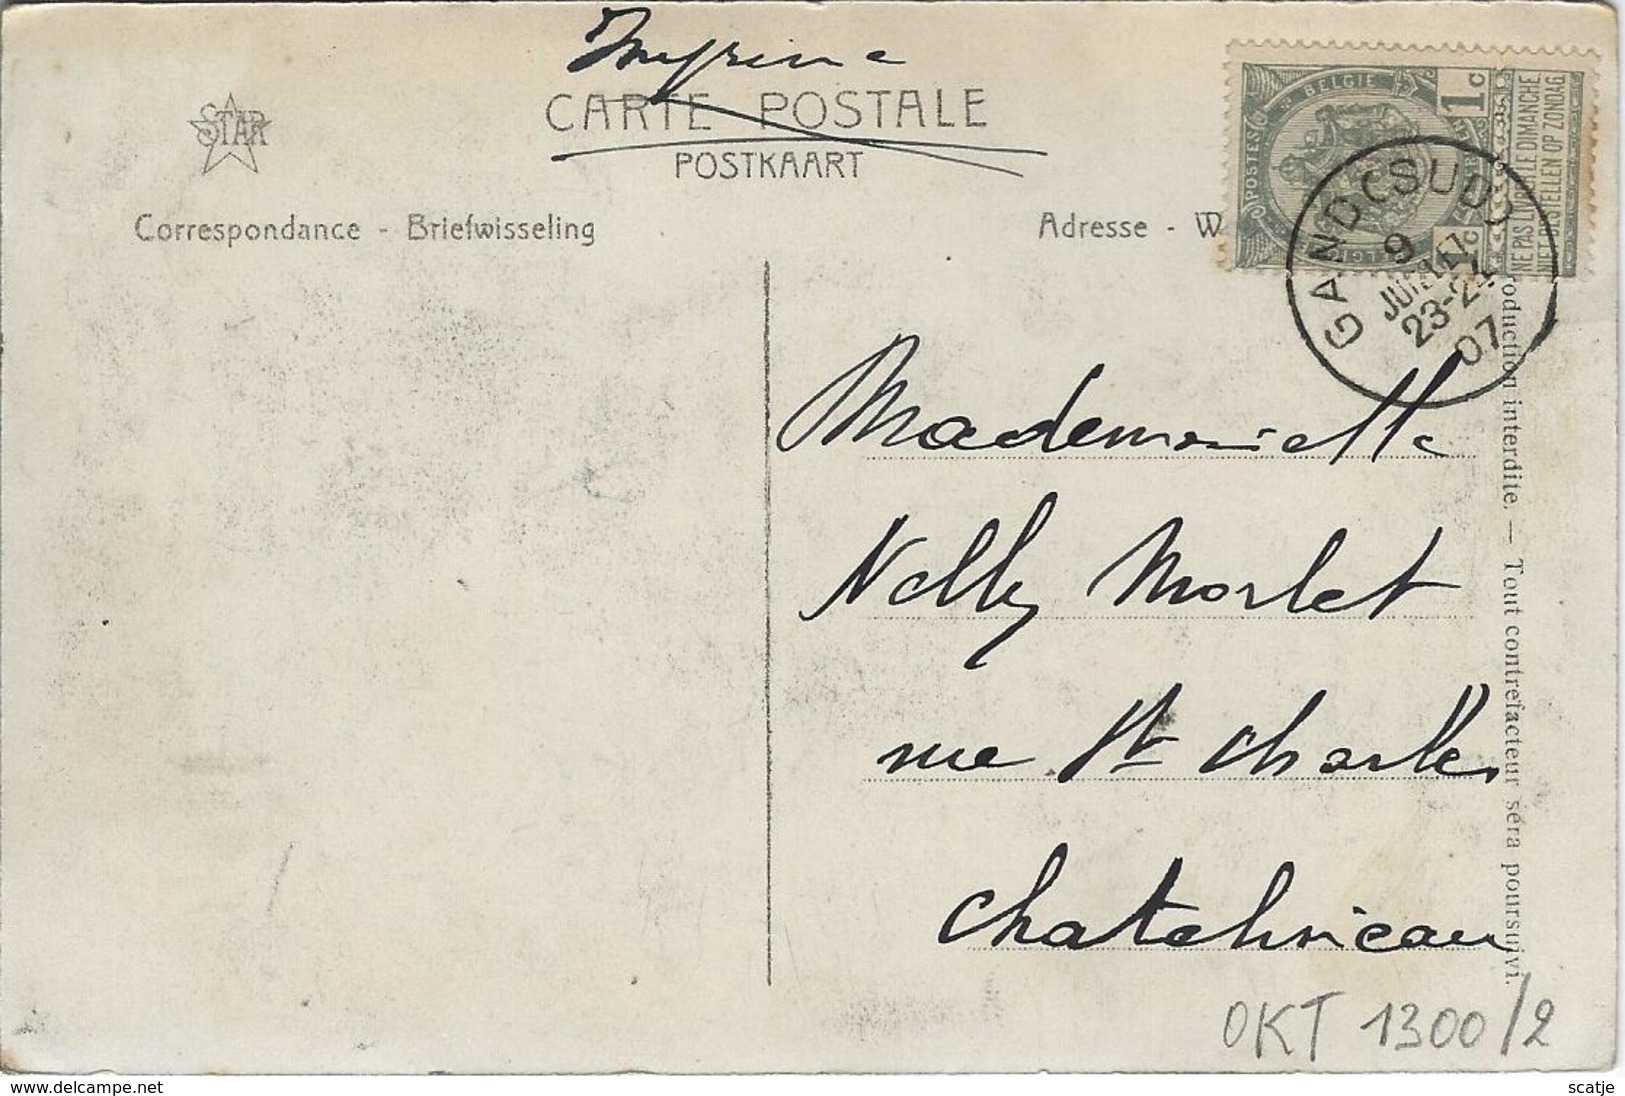 Imprimé
CARTE POSTALE
POSTKAART
STAR
Correspondance - Briefwisseling
Adresse - W
POSTES BELGIE 1c
1c
NE PAS LIVRER LE DIMANCHE
NIET BESTELLEN OP ZONDAG
GAND (SUD)
9
JUILLET
23-24
07
Mademoiselle
Nelly Morlet
rue St Charles
Chatelineau
roduction interdite. — Tout contrefacteur sera poursuivi.
OKT 1300/2
delcampe.net
scatje